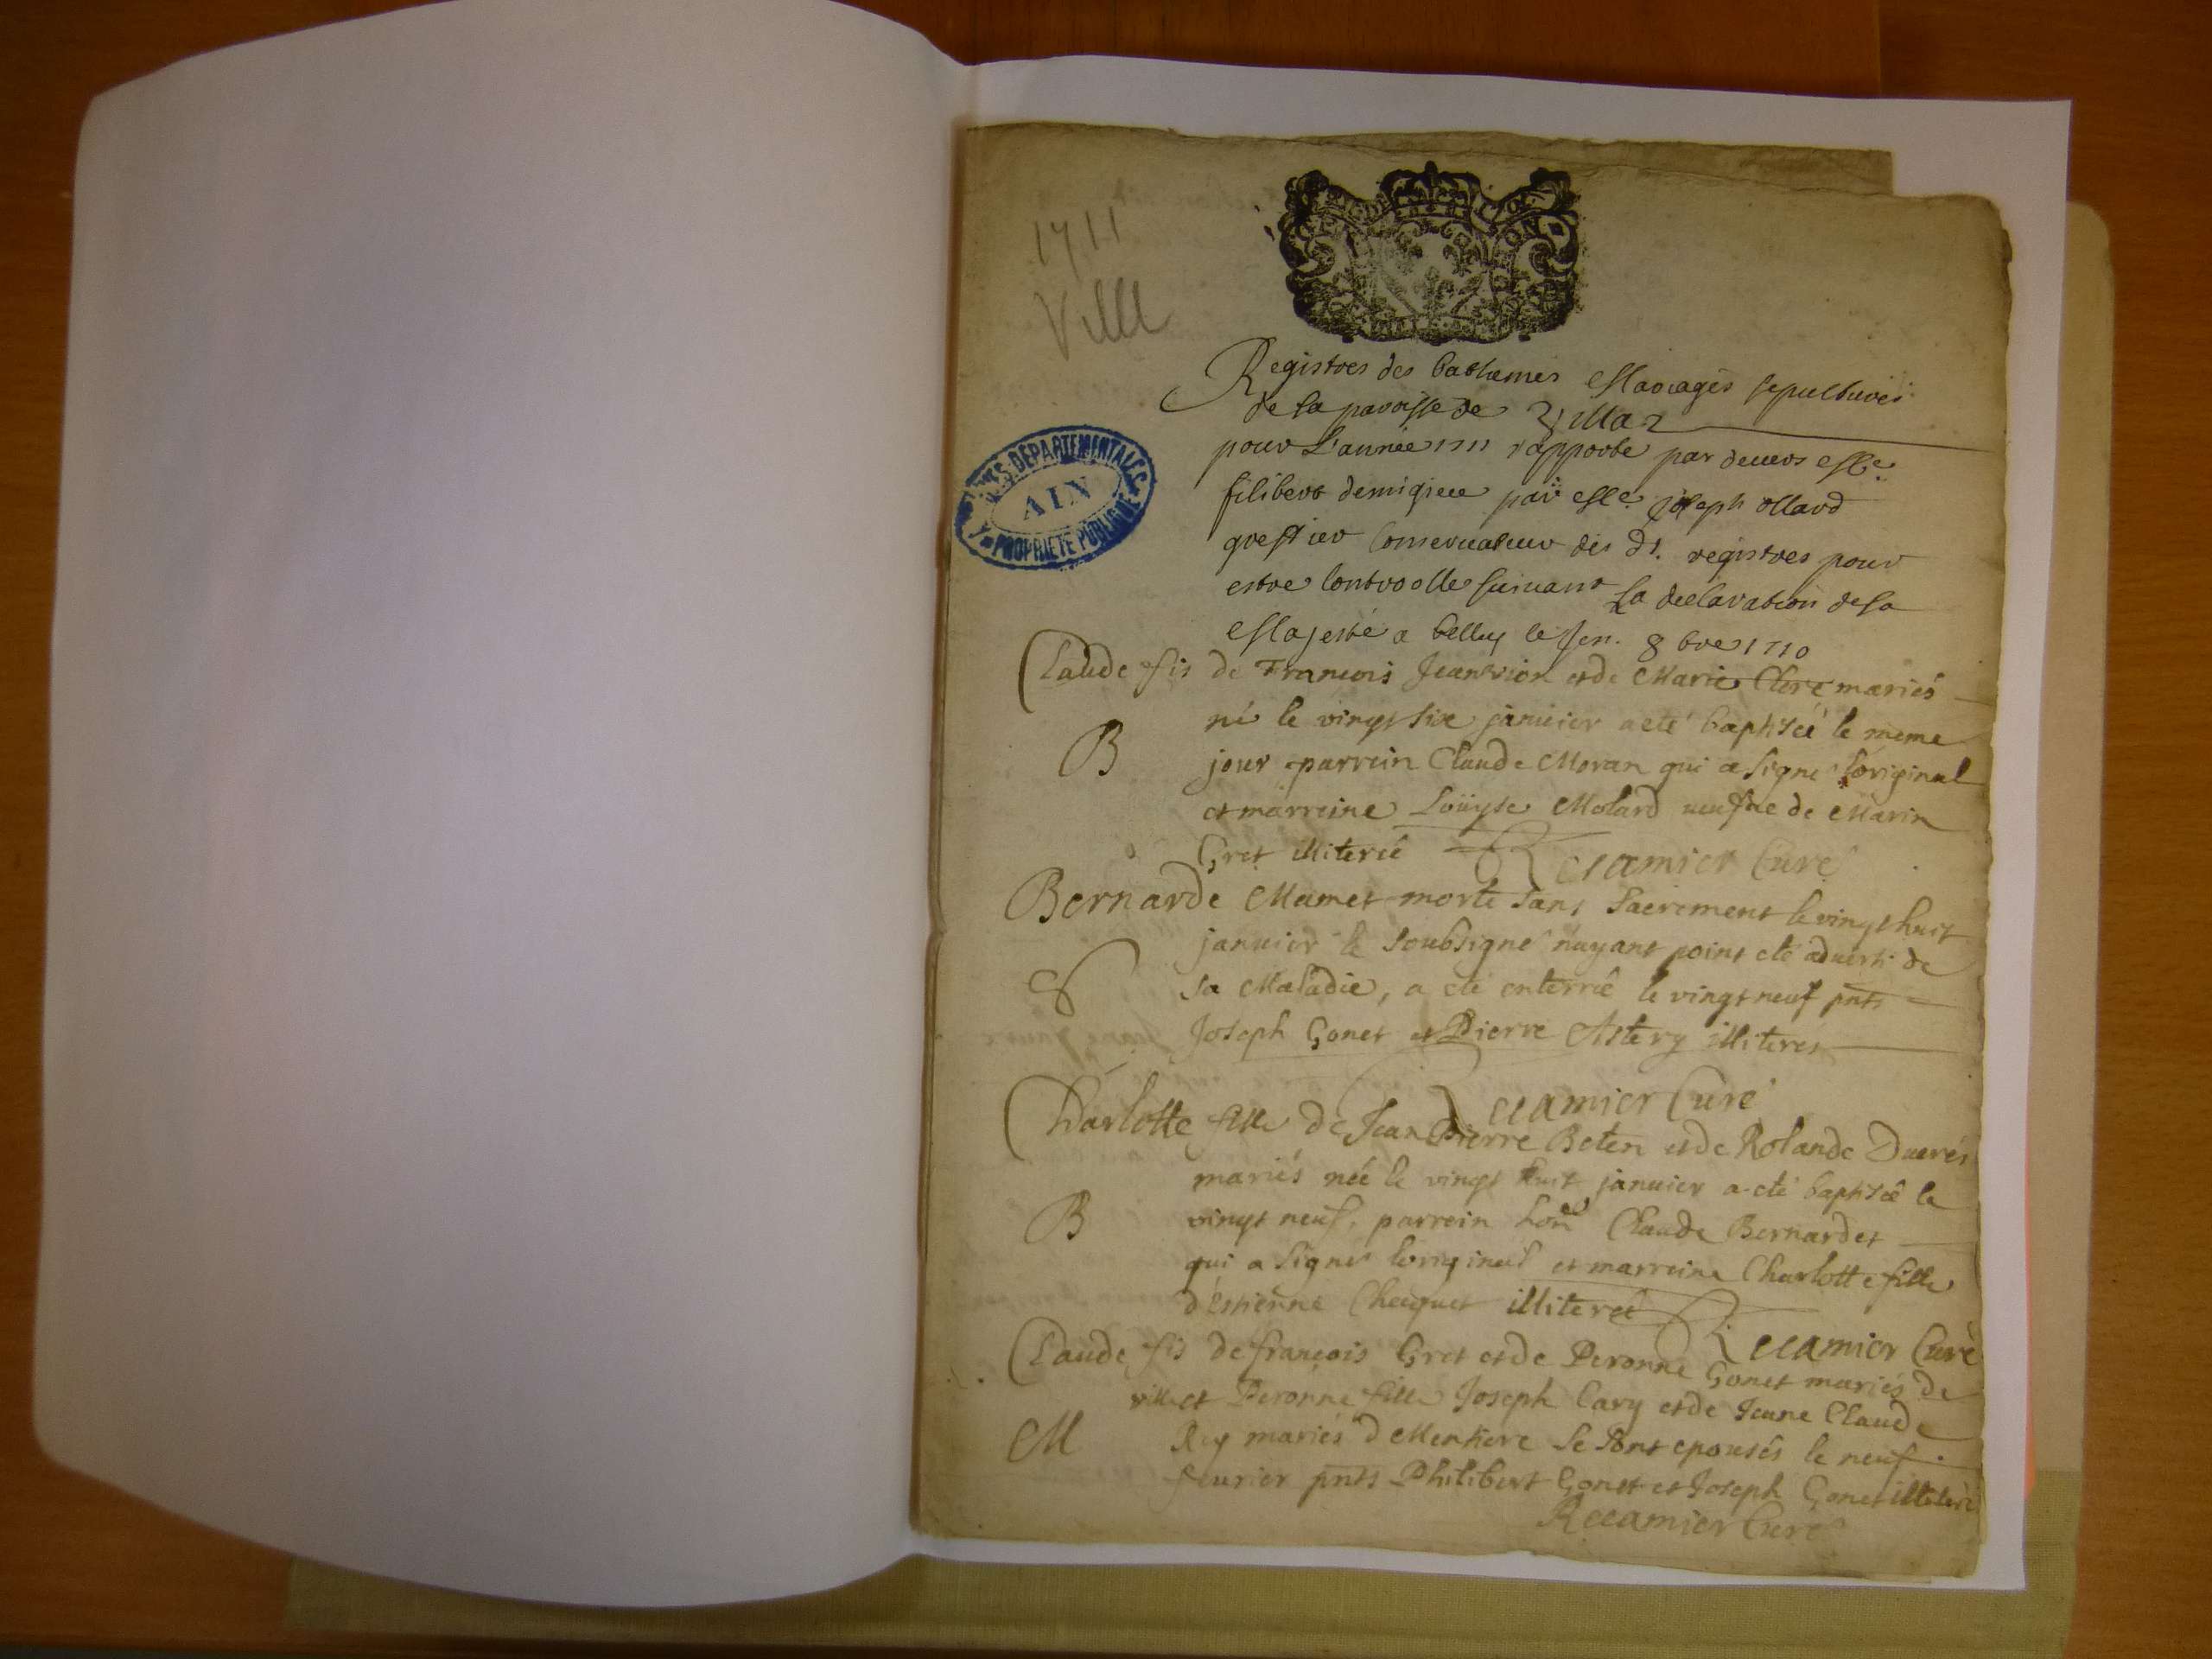 1711
Vill
Registres des bathemes Mariages sepultures
de la paroisse de Villaz
pour L'année 1711 rapporte par devers Me
filibert demigieu par Me Joseph ollard
greffier Conservateur des dt. registres pour
estre Controolle suivant La declaration de sa
Majesté a belley le 8bre 1710
ARCHIVES DÉPARTEMENTALES
AIN
PROPRIÉTÉ PUBLIQUE
Claude fis de François Jeantrion et de Marie Clere mariés
né le vingt six janvier a eté baptisé le meme
B
jour parrein Claude Moran qui a signé l'original
et marreine Loüyse Molard veufve de Marin
Gret illiteréé Recamier Curé
Bernarde Mamet morte sans sacrement le vingt huit
janvier le soubsigné nayant point eté adverti de
S
sa Maladie, a eté enterréé le vingt neuf pnts
Joseph Gonet et Pierre Astery illiteres
Recamier Curé
Charlotte fille de Jean Pierre Beten et de Rolande Ducrés
mariés née le vingt huit janvier a eté baptiséé le
B
vingt neuf, parrein hon Claude Bernardet
qui a signé loriginal et marreine Charlotte fille
d'Estienne Chaquet illiteréé Recamier Curé
Claude fis de françois Gret et de Peronne Gonet mariés de
ville et Peronne fille Joseph Cary et de Jeane Claude
M
Rey mariés d Mentiere se sont epousés le neuf
fevrier pnts Philibert Gonet et Joseph Gonet illiteré
Recamier Curé